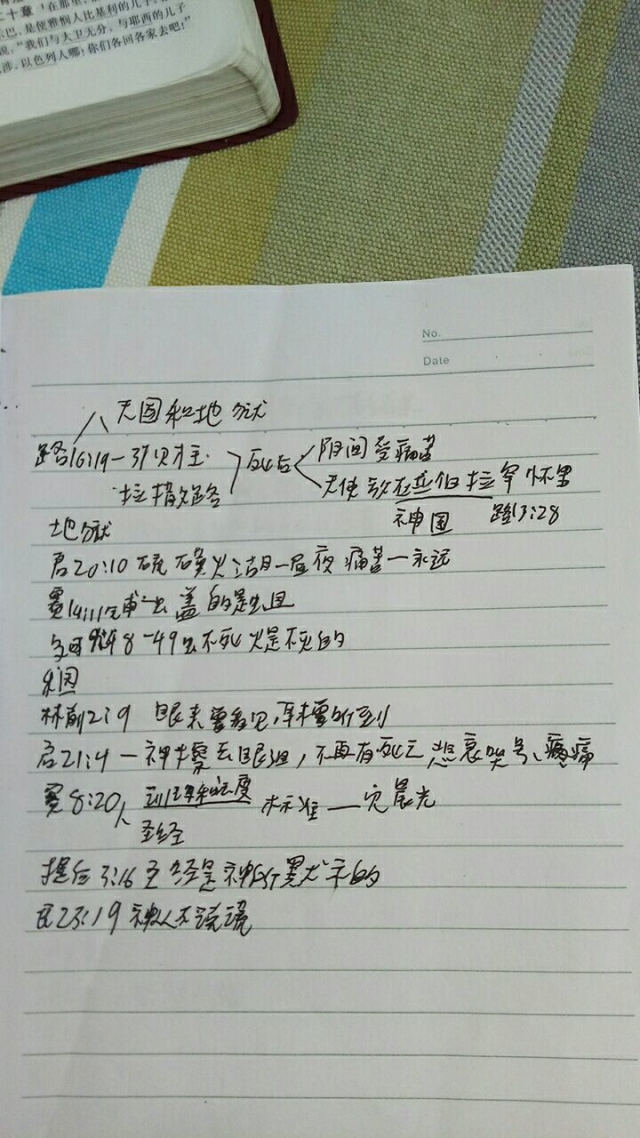 二十章
巴,是便雅悯人比基利的儿子,
说:“我们与大卫无分,与耶西的儿子
涉。以色列人哪!你们各回各家去吧!”
No.
Date
天国和地狱
路16:19-31财主 死后 阴间受痛苦
拉撒路 天使 放在亚伯拉罕怀里
地狱 神国 路13:28
启20:10硫磺火湖昼夜痛苦—永远
赛14:11 盖的是蛆
可 48-49虫不死火是不灭的
乐园
林前2:9 眼未曾看见,耳未曾听到
启21:4—神擦去眼泪,不再有死亡 悲哀哭号、疼痛
赛8:20人 标准—见晨光
圣经
提后3:16圣经是神所默示的
民23:19神人不说谎